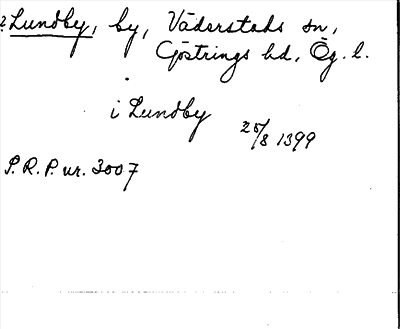 ? Lundby, by, Väderstads sn,
Göstrings hd, Ög. l.
i Lundby
25/8 1399
S.R.P. nr. 3007